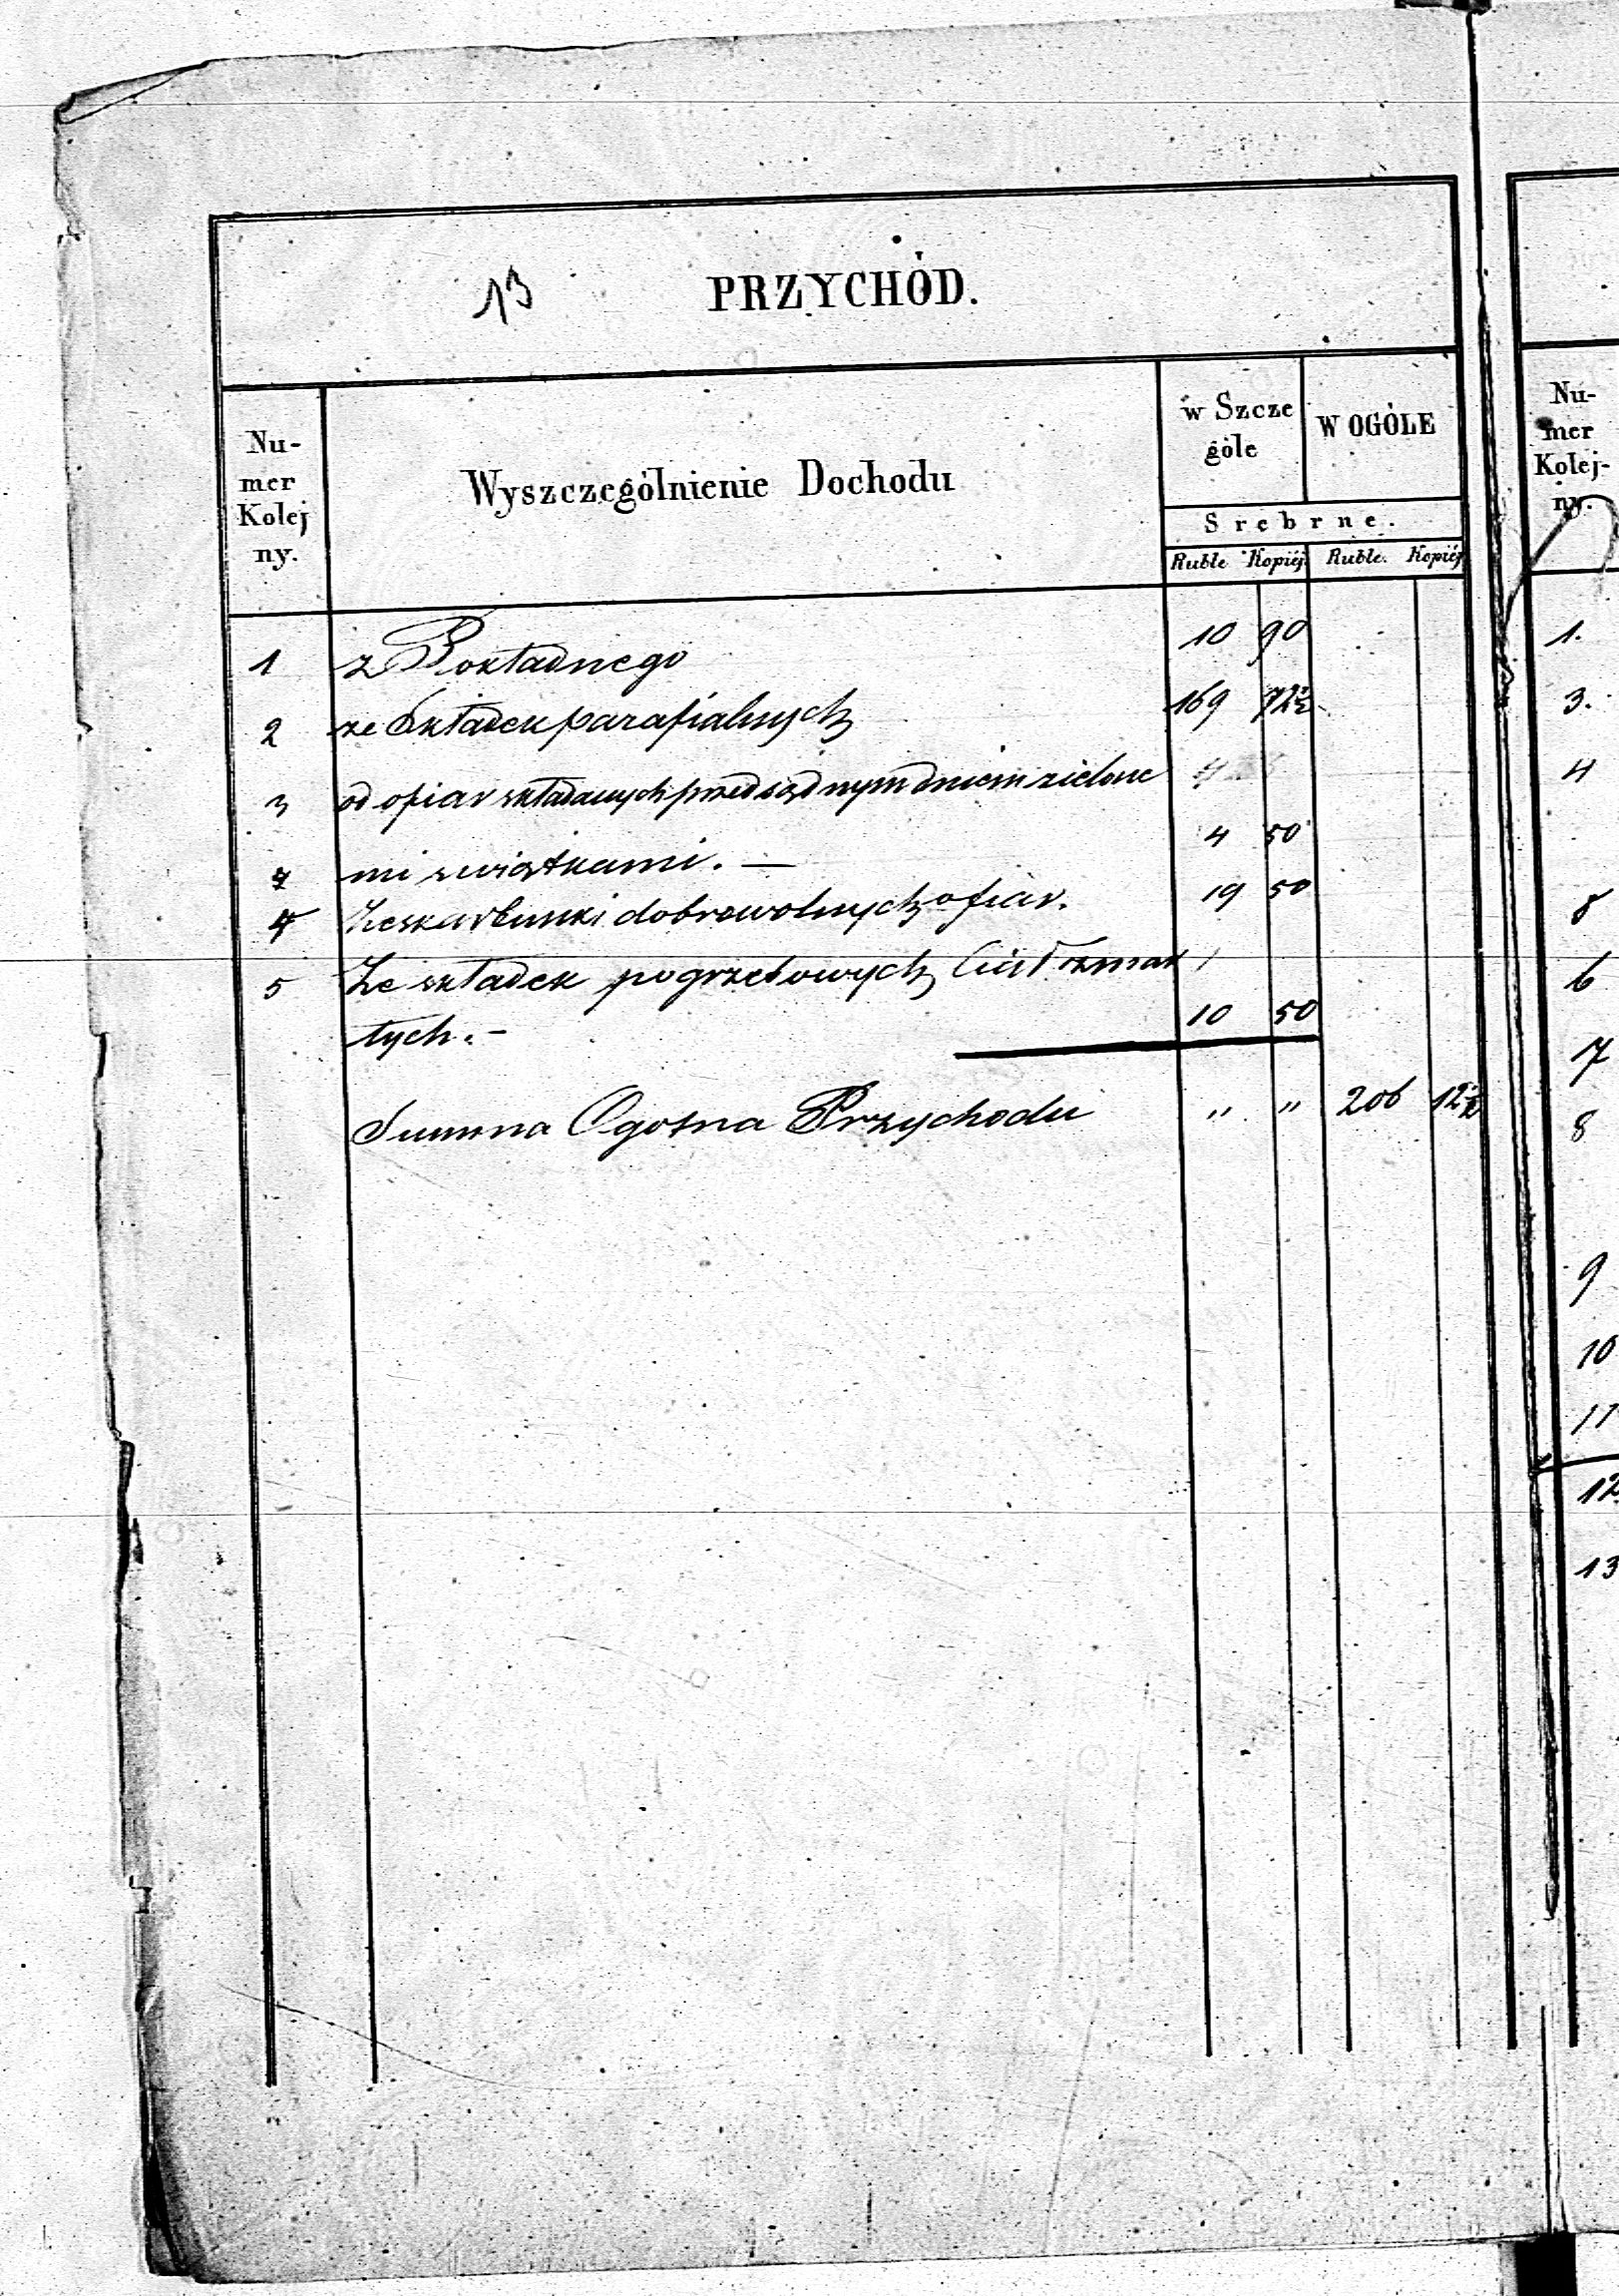 13 PRZYCHÓD.
Nu-
mer
Kolej
ny.
Wyszczególnienie Dochodu
w Szcze
góle
W OGÓLE
Srebrne.
Ruble Kopiéj Ruble. Kopiéj
1 z Pokładnego 10 90
2 ze Składek parafialnych 169 72½
3 od ofiar składanych przed sądnym dniem zielone
mi swiątkami. — 4 50
4 Ze skarbunki dobrowolnych ofiar. 19 50
5 Ze składek pogrzebowych Ciał zmar
łych. - 10 50
Summa Ogolna Przychodu " " 206 12½
Nu-
mer
Kolej-
ny.
1.
3.
4
8
6
7
8
9
10
11
12
13